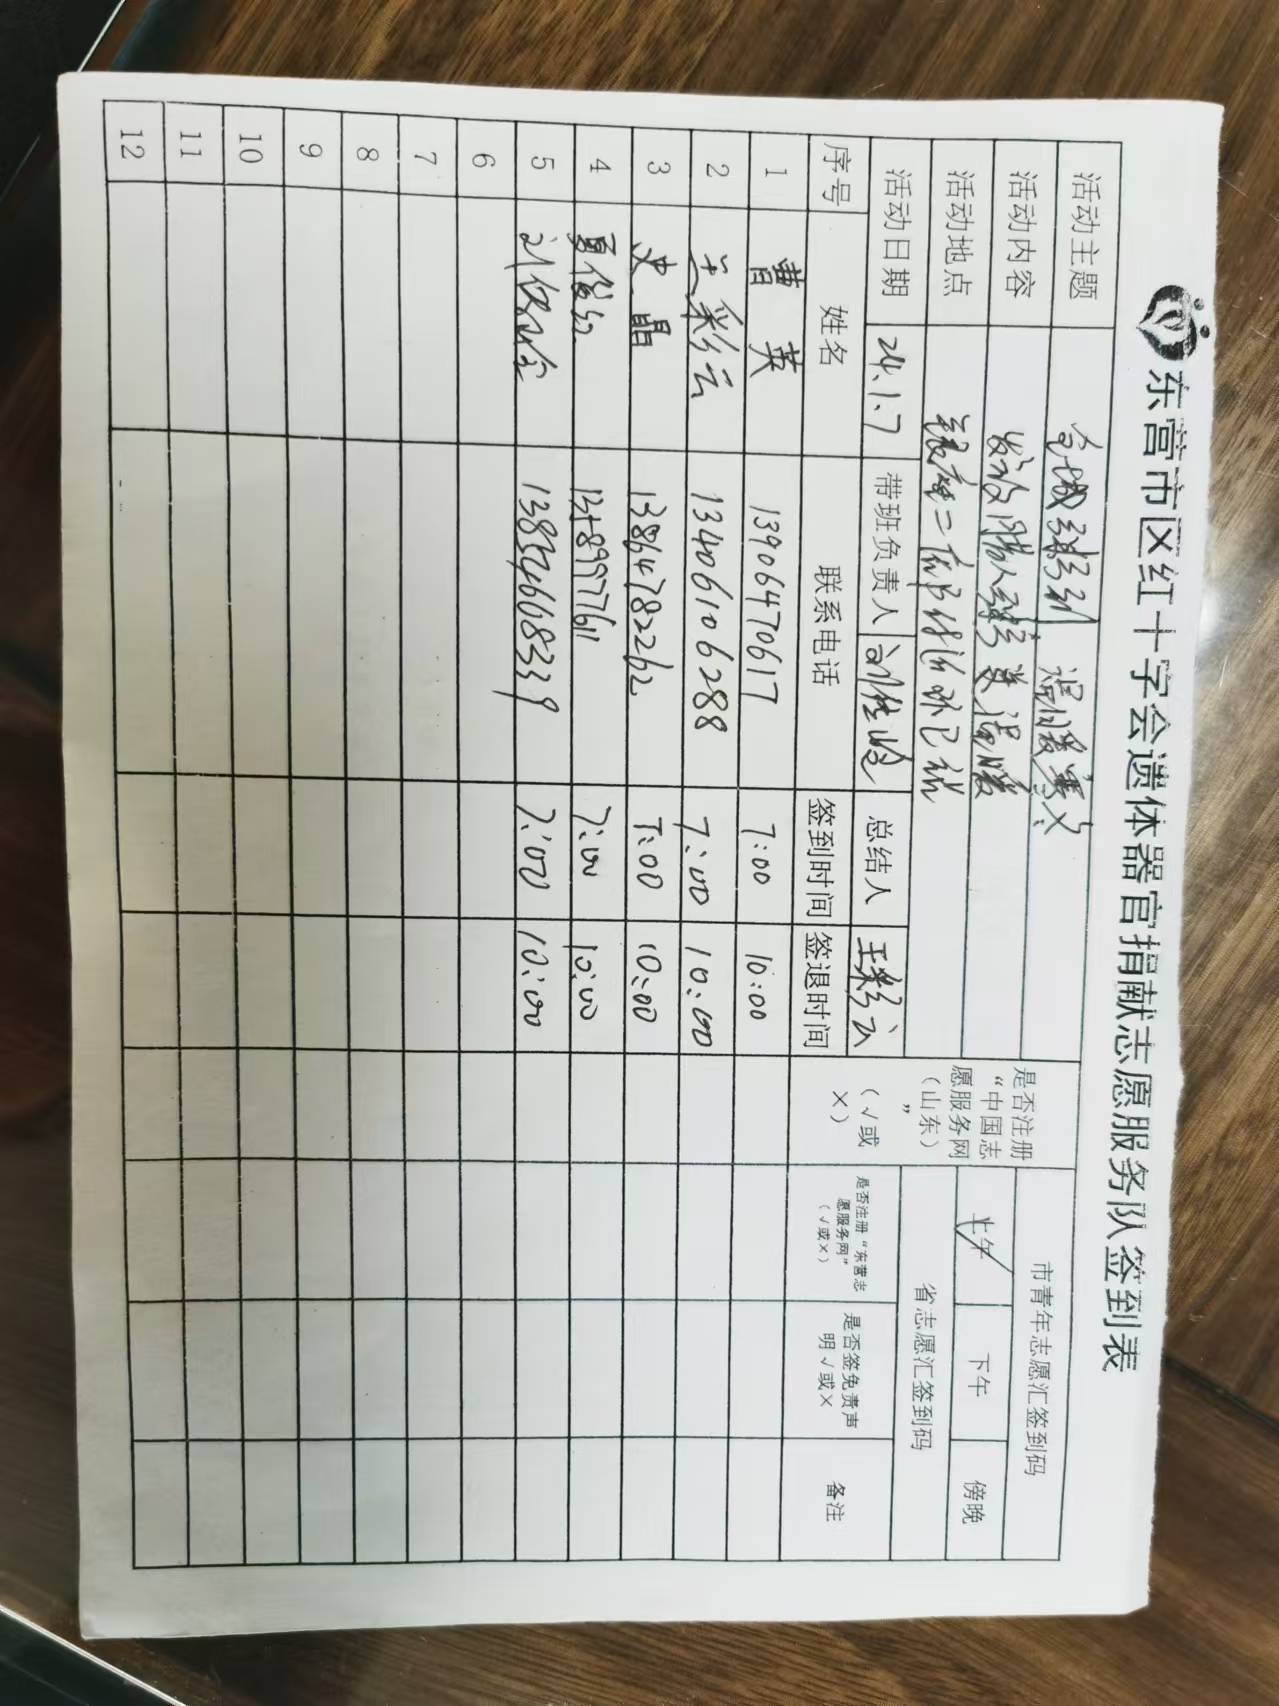 东营市区红十字会遗体器官捐献志愿服务队签到表
活动主题 温暖
市青年志愿汇签到码
活动内容
是否注册“中国志愿服务网（山东）”（√或×）
上午 下午 傍晚
活动地点
省志愿汇签到码
活动日期 24.1.7 带班负责人 总结人 王彩云
序号 姓名 联系电话 签到时间 签退时间 是否注册“东营志愿服务网”（√或×） 是否签免责声明√或× 备注
1 曹英 13906470617 7:00 10:00
2 王彩云 13406106288 7:00 10:00
3 史晶 13864782262 7:00 10:00
4 7:00 10:00
5 7:00 10:00
6
7
8
9
10
11
12